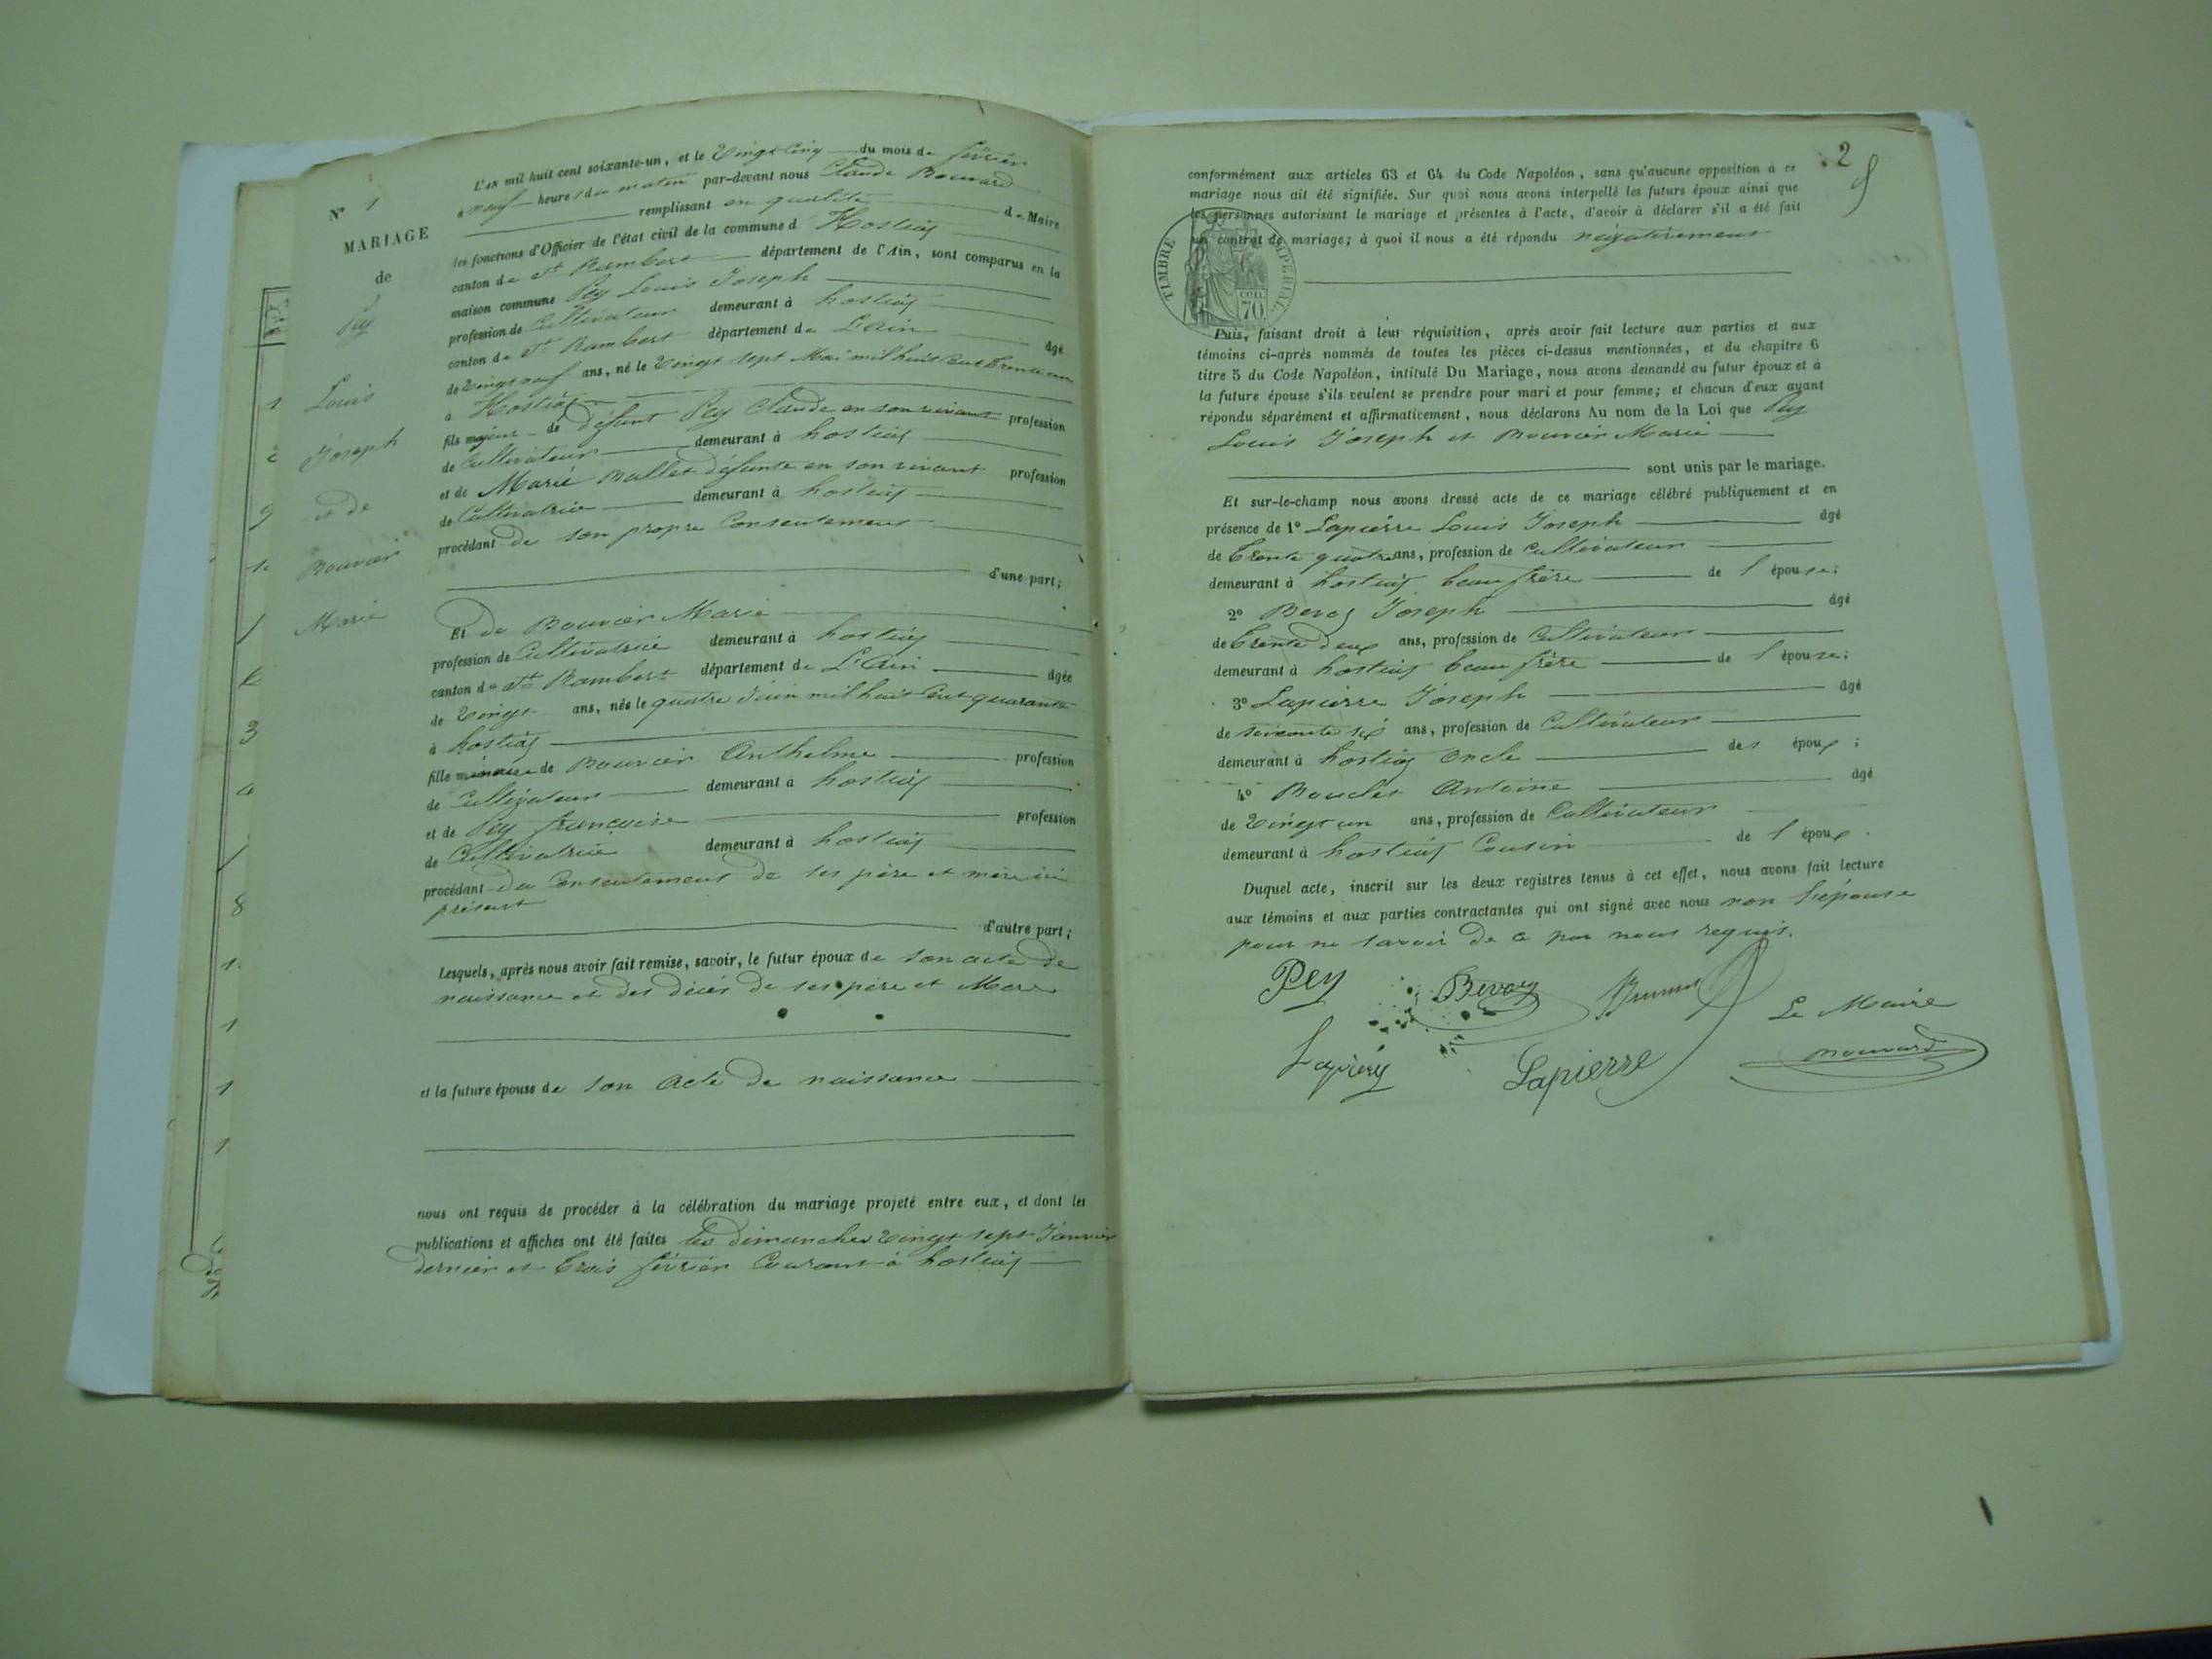 N° 1
MARIAGE
de
Pey
Louis
Joseph
et de
Bouvier
Marie
L'AN mil huit cent soixante-un, et le Vingt Cinq du mois de février
à neuf heures du matin par-devant nous Claude Bouvard
remplissant en qualité de Maire
les fonctions d'Officier de l'état civil de la commune d Hostiaz
canton de St Rambert département de l'Ain, sont comparus en la
maison commune Pey Louis Joseph
profession de Cultivateur demeurant à hostiaz
canton de St Rambert département de L'ain âgé
de Vingt neuf ans, né le Vingt sept Mai mil huit Cent trente un
à Hostiaz
fils majeur de défunt Pey Claude en son vivant profession
de Cultivateur demeurant à hostiaz
et de Marie Ballet défunte en son vivant profession
de Cultivatrice demeurant à hostiaz
procédant de son propre Consentement
d'une part;
Et de Bouvier Marie
profession de Cultivatrice demeurant à hostiaz
canton de St Rambert département de L'Ain âgée
de Vingt ans, née le quatre Juin mil huit Cent quarante
à hostiaz
fille mineure de Bouvier Anthelme profession
de Cultivateur demeurant à hostiaz
et de Pey françoise profession
de Cultivatrice demeurant à hostiaz
procédant du Consentement de ses père et mère ici
présent
d'autre part;
Lesquels, après nous avoir fait remise, savoir, le futur époux de son acte de
naissance et des décès de ses père et Mère
et la future épouse de son Acte de naissance
nous ont requis de procéder à la célébration du mariage projeté entre eux, et dont les
publications et affiches ont été faites les dimanches Vingt sept Janvier
dernier et trois février Courant à hostiaz
2
conformément aux articles 63 et 64 du Code Napoléon, sans qu'aucune opposition à ce
mariage nous ait été signifiée. Sur quoi nous avons interpellé les futurs époux ainsi que
les personnes autorisant le mariage et présentes à l'acte, d'avoir à déclarer s'il a été fait
un contrat de mariage; à quoi il nous a été répondu négativement
TIMBRE IMPÉRIAL
CEN.
70
Puis, faisant droit à leur réquisition, après avoir fait lecture aux parties et aux
témoins ci-après nommés de toutes les pièces ci-dessus mentionnées, et du chapitre 6
titre 5 du Code Napoléon, intitulé Du Mariage, nous avons demandé au futur époux et à
la future épouse s'ils veulent se prendre pour mari et pour femme; et chacun d'eux ayant
répondu séparément et affirmativement, nous déclarons Au nom de la Loi que Pey
Louis Joseph et Bouvier Marie
sont unis par le mariage.
Et sur-le-champ nous avons dressé acte de ce mariage célébré publiquement et en
présence de 1° Lapierre Louis Joseph âgé
de trente quatre ans, profession de Cultivateur
demeurant à hostiaz beau frère de l'épouse;
2° Bevoz Joseph âgé
de trente deux ans, profession de Cultivateur
demeurant à hostiaz beau frère de l'épouse;
3° Lapierre Joseph âgé
de soixante six ans, profession de Cultivateur
demeurant à hostiaz oncle des époux;
4° Antoine âgé
de Vingt un ans, profession de Cultivateur
demeurant à hostiaz Cousin de l'époux.
Duquel acte, inscrit sur les deux registres tenus à cet effet, nous avons fait lecture
aux témoins et aux parties contractantes qui ont signé avec nous non l'épouse
pour ne savoir de ce par nous requis.
Pey Bevoz Le Maire
Lapierre Bouvard